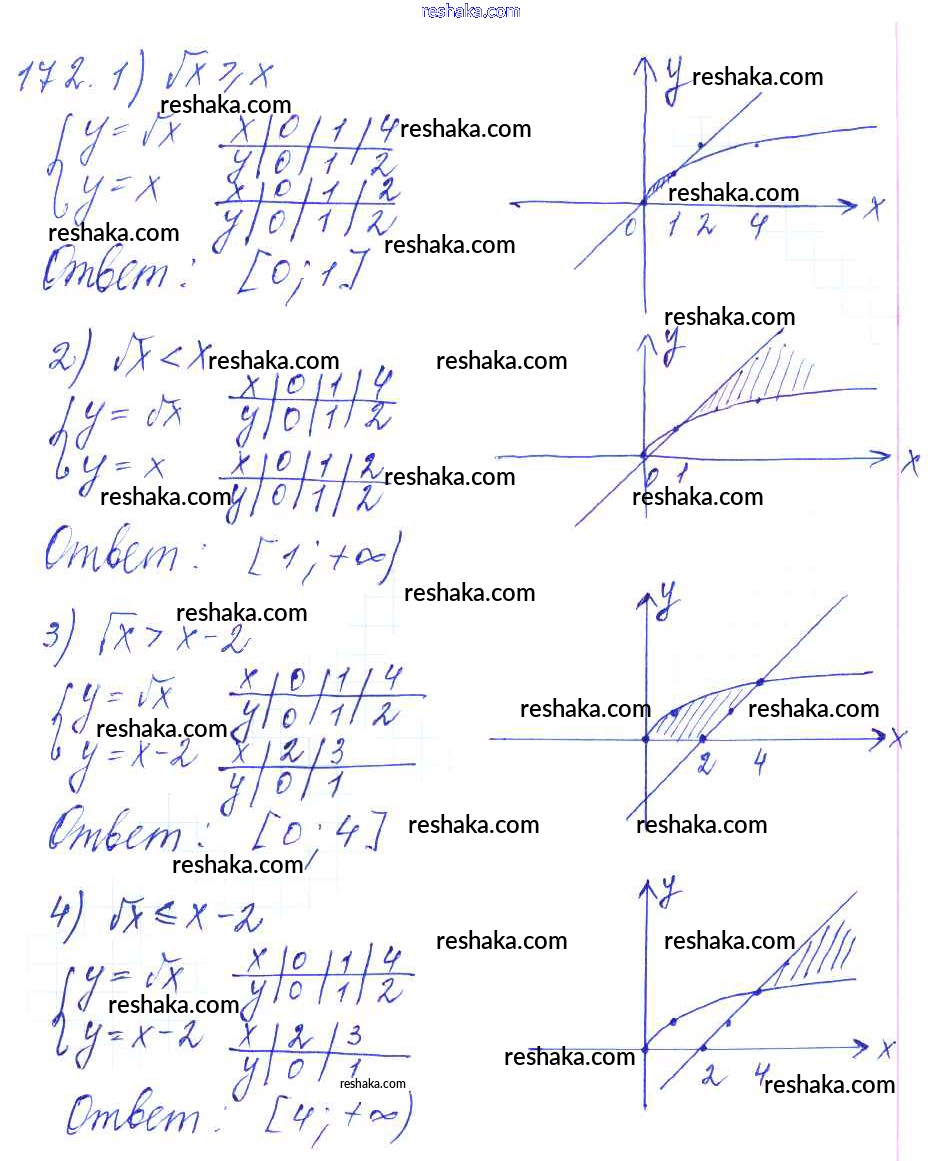 reshaka.com
172. 1) √x ⩾ x
y reshaka.com
reshaka.com
{ y = √x x | 0 | 1 | 4 reshaka.com
y | 0 | 1 | 2
y = x x | 0 | 1 | 2 reshaka.com
y | 0 | 1 | 2 0 1 2 4 x
reshaka.com reshaka.com
Ответ: [0; 1]
reshaka.com
2) √x < x reshaka.com reshaka.com y
{ y = √x x | 0 | 1 | 4
y | 0 | 1 | 2
y = x x | 0 | 1 | 2 reshaka.com 0 1 x
reshaka.com y | 0 | 1 | 2 reshaka.com
Ответ: [1; +∞)
reshaka.com reshaka.com y
3) √x > x - 2
{ y = √x x | 0 | 1 | 4
reshaka.com y | 0 | 1 | 2 reshaka.com reshaka.com
y = x - 2 x | 2 | 3 2 4 x
y | 0 | 1
Ответ: [0; 4] reshaka.com reshaka.com
reshaka.com
4) √x ⩽ x - 2 y
reshaka.com reshaka.com
{ y = √x x | 0 | 1 | 4
reshaka.com y | 0 | 1 | 2
y = x - 2 x | 2 | 3 reshaka.com x
y | 0 | 1 2 4
reshaka.com reshaka.com
Ответ: [4; +∞)